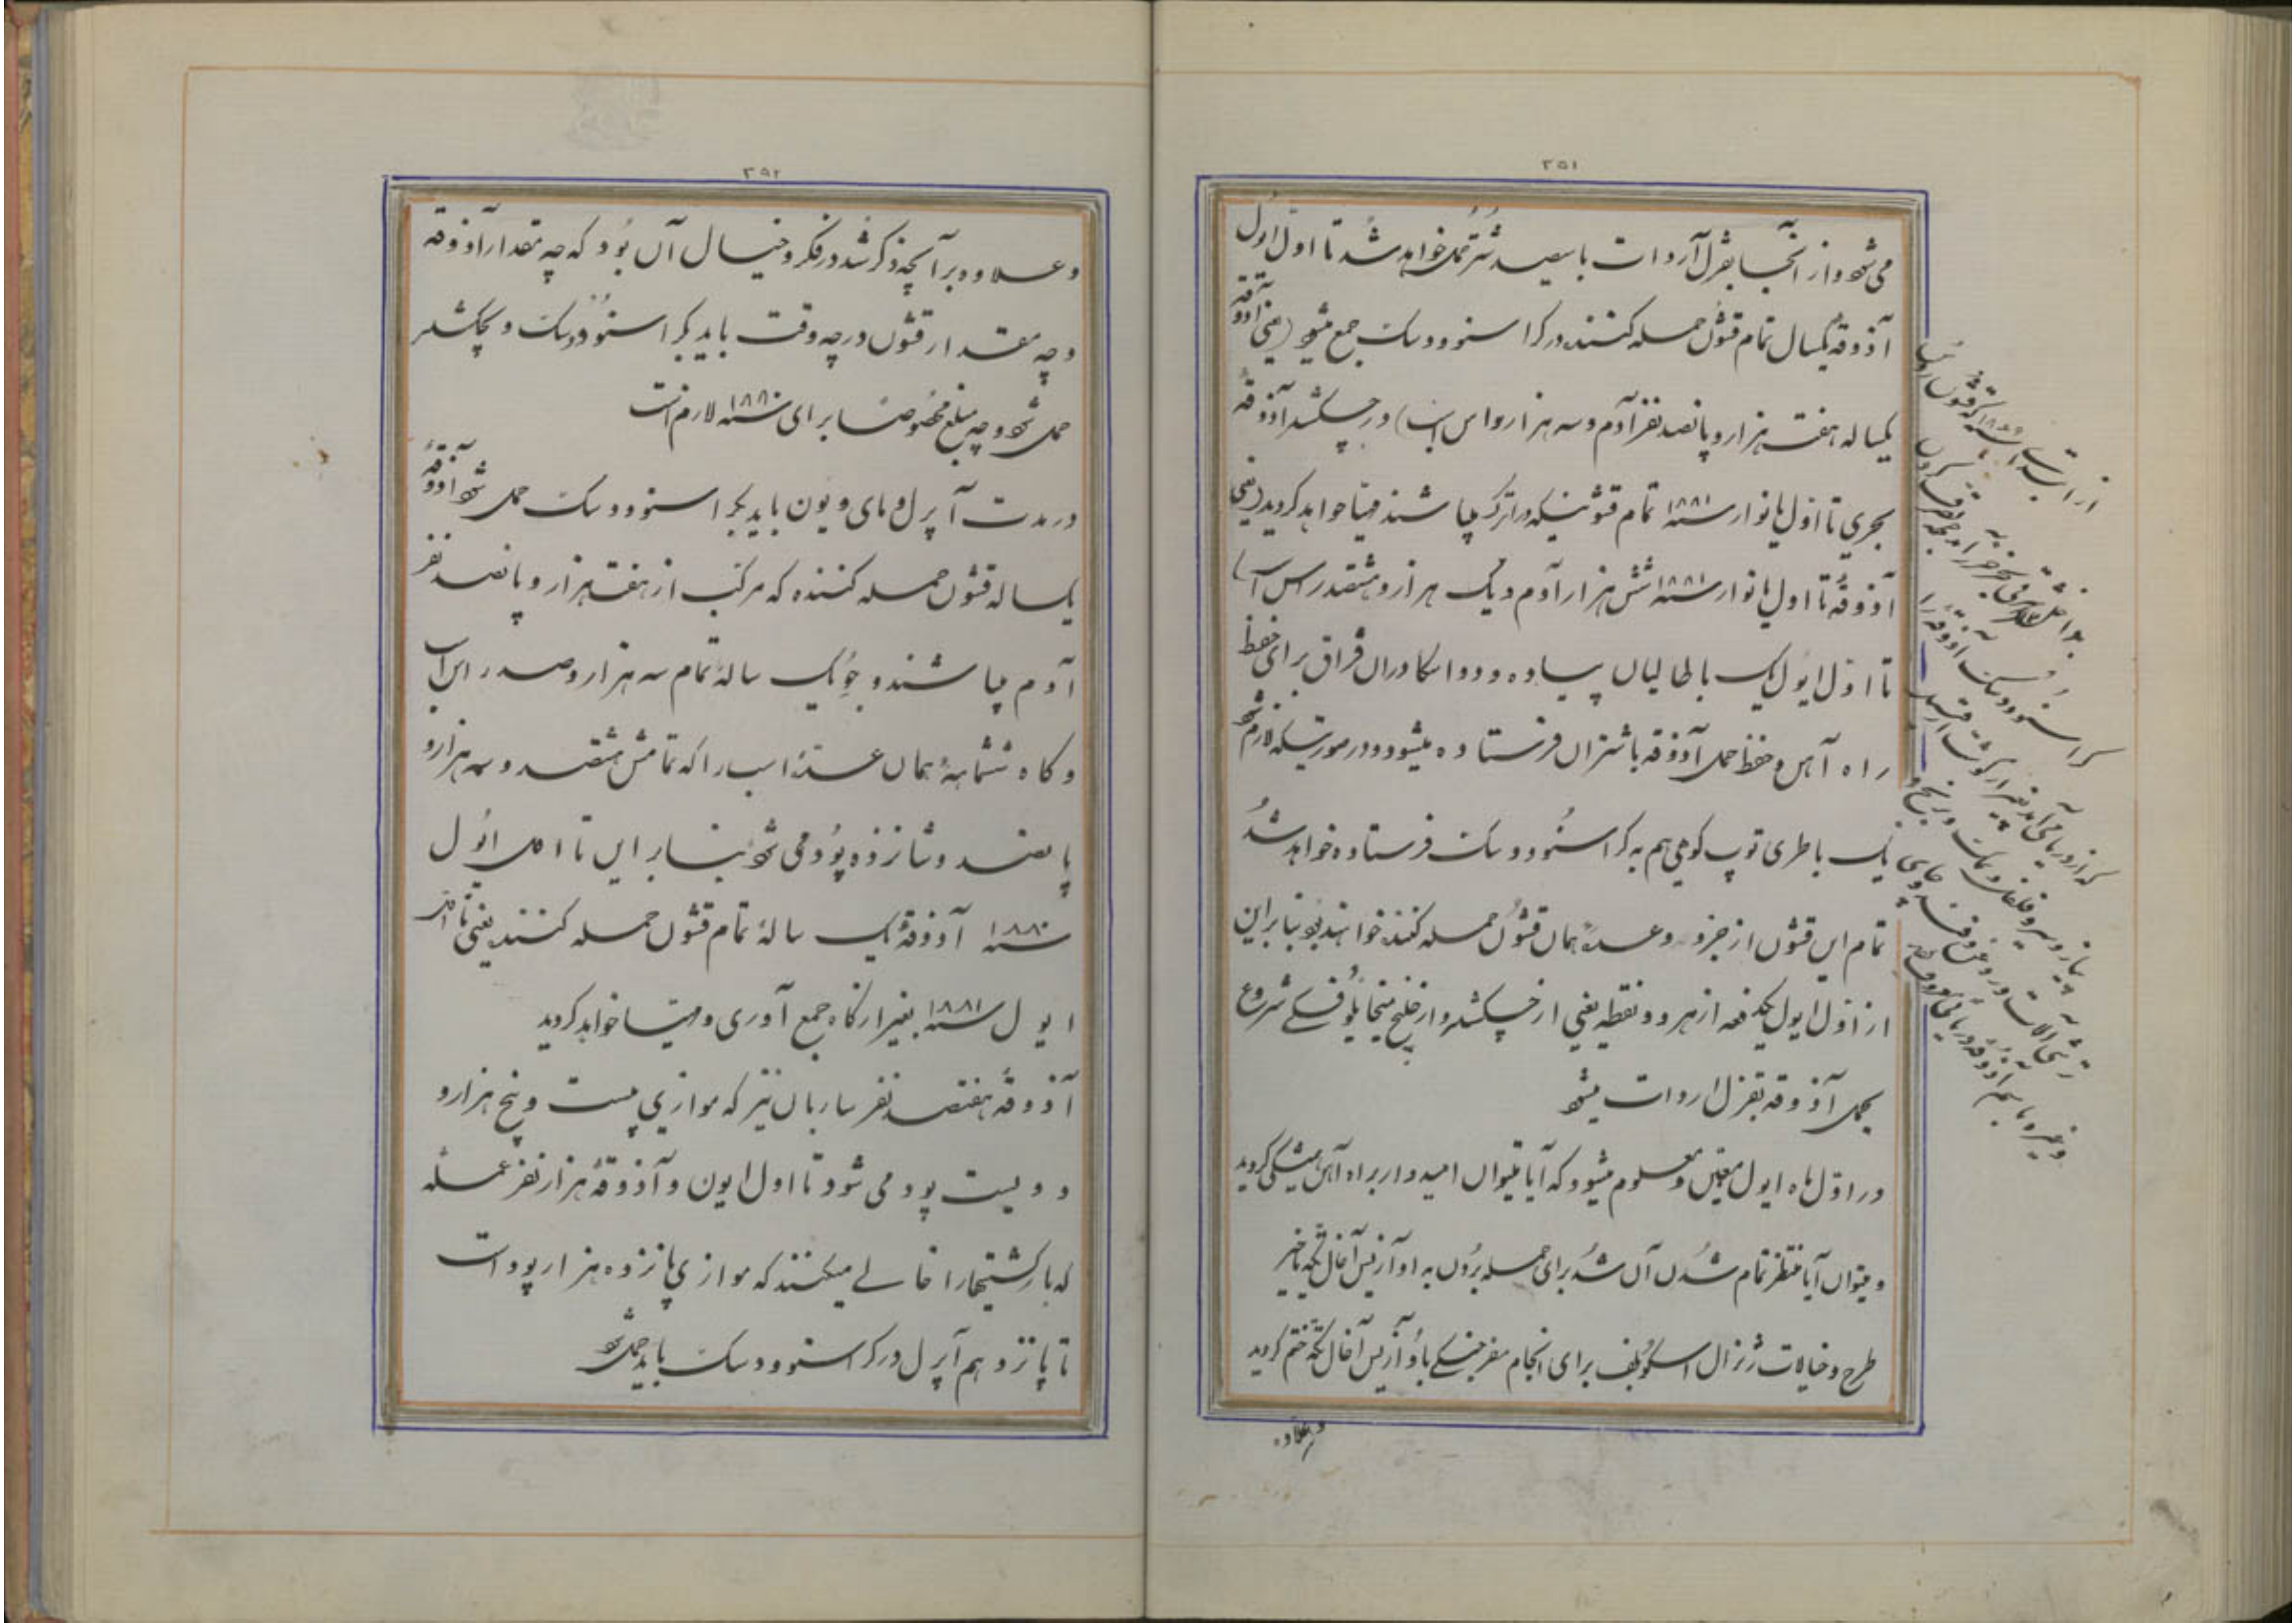 ۳۵۱
می‌شود و از آنجا بقزل آروات با سیصد شتر حمل خواهد شد تا اول ایول
آذوقه یکسال تمام قشون حمله کننده در کراسنوودسک جمع میشود (یعنی آذوقه
یکساله هفت هزار و پانصد نفر آدم و سه هزار رأس اسب) در چکشلر آذوقه
بحری تا اول یانوار سنه ۱۸۸۱ تمام قشونیکه در اترک میباشند مهیا خواهد گردید (یعنی
آذوقه تا اول یانوار سنه ۱۸۸۱ شش هزار آدم و یک هزار و هشتصد رأس اسب)
تا اول ایول یک باطالیان پیاده و دو اسکادران قزاق برای حفظ
راه آهن و حفظ حمل آذوقه با شتران فرستاده میشود و در صورتیکه لازم شود
یک باطری توپ کوهی هم به کراسنوودسک فرستاده خواهد شد
تمام این قشون از جزو و عده همان قشون حمله کننده خواهند بود بنابراین
از اول ایول یکدفعه از هر دو نقطه یعنی از چکشلر و از خلیج میخایلوفسکی شروع
بحمل آذوقه بقزل اروات میشود
در اول ماه ایول معین و معلوم میشود که آیا میتوان امیدوار براه آهن متکی گردید
و میتوان آیا منتظر تمام شدن آن شد برای حمله بردن به اوآزیس آخال تکه یا خیر
طرح و خیالات ژنرال اسکوبلف برای انجام سفر جنگی باوآزیس آخال تکه ختم گردید
وعلاوه
از بابت سنه ۱۸۷۹ که قشون روس
بسواحل شرقی بحر خزر
کراسنوودسک آذوقه را
که از دریا می‌آمد بغیر از گوشت
پیاز و سیر و فلفل و نمک و برنج و
ترشی آلات و روغن و قند و چای
و غیره تمام آذوقه دریائی
۳۵۲
وعلاوه بر آنچه ذکر شد در فکر و خیال آن بود که چه مقدار آذوقه
و چه مقدار قشون در چه وقت باید بکراسنوودسک و بچکشلر
حمل شود و چه مبلغ مخصوصا برای سنه ۱۸۸۰ لازم است
در مدت آپرل و مای و یون باید بکراسنوودسک حمل شود آذوقه
یکساله قشون حمله کننده که مرکب از هفت هزار و پانصد نفر
آدم میباشند و جو یک ساله تمام سه هزار و صد رأس اسب
و کاه ششماهه همان عده اسب را که تمامش هشتصد و سه هزار و
پانصد و شانزده پود می‌شود بنابراین تا اول ایول
سنه ۱۸۸۰ آذوقه یک ساله تمام قشون حمله کننده یعنی تا اول
ایول سنه ۱۸۸۱ بغیر از کاه جمع آوری و مهیا خواهد گردید
آذوقه هفتصد نفر ساربان نیز که موازی بیست و پنج هزار و
دویست پود می شود تا اول ایون و آذوقه هزار نفر عمله
که بار کشتیها را خالی میکنند که موازی پانزده هزار پود است
تا پانزدهم آپرل در کراسنوودسک باید حمل شود